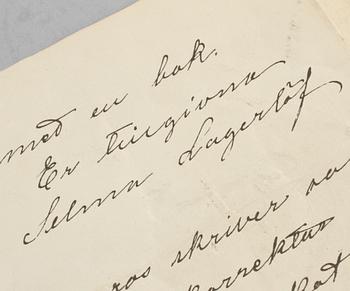 med en bok.
Er tillgivna
Selma Lagerlöf
ros skriver
korrektur